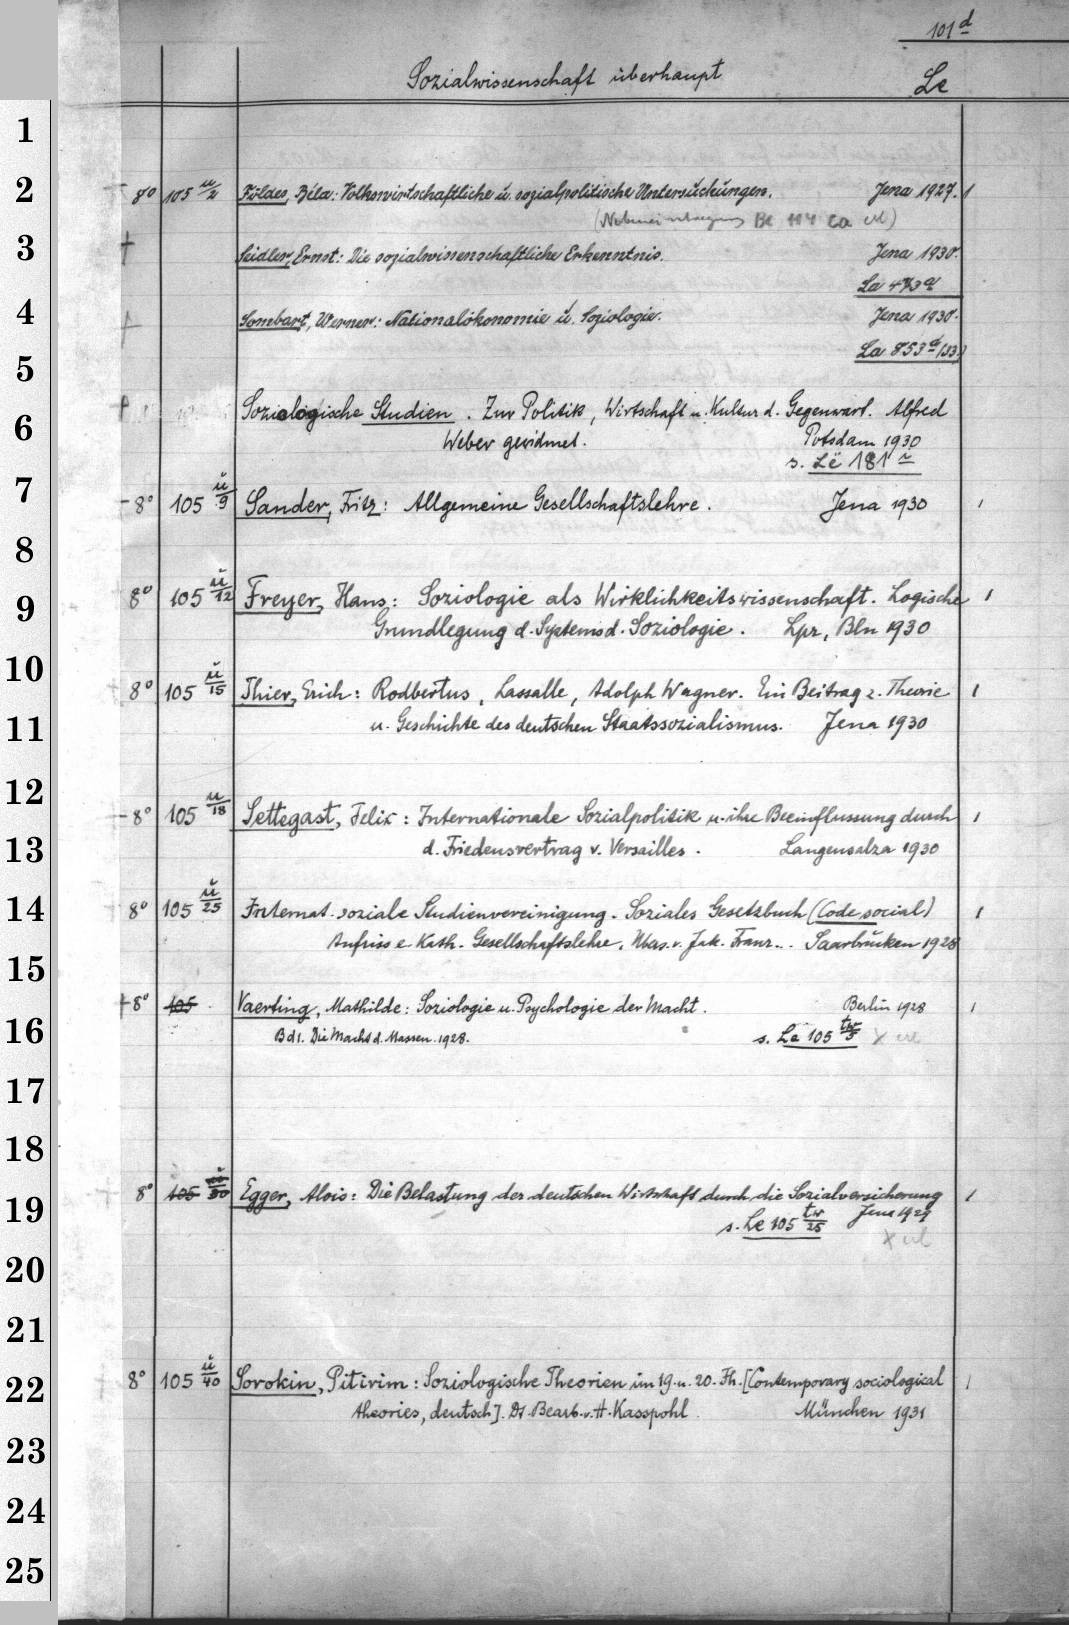 101 d
Sozialwissenschaft überhaupt Le
8° 105 u/2 Földes, Béla: Volkswirtschaftliche u. sozialpolitische Untersuchungen. Jena 1927. 1
Be 114 Ca
Seidler, Ernst: Die sozialwissenschaftliche Erkenntnis. Jena 1930.
La
Sombart, Werner: Nationalökonomie u. Soziologie. Jena 1930.
La 853
Soziologische Studien. Zur Politik, Wirtschaft u. Kultur d. Gegenwart. Alfred
Weber gewidmet. Potsdam 1930
s. Le 181
8° 105 ü/9 Sander, Fritz: Allgemeine Gesellschaftslehre. Jena 1930 1
8° 105 ü/12 Freyer, Hans: Soziologie als Wirklichkeitswissenschaft. Logische 1
Grundlegung d. Systems d. Soziologie. Lpz, Bln 1930
8° 105 ü/15 Thier, Erich: Rodbertus, Lassalle, Adolph Wagner. Ein Beitrag z. Theorie 1
u. Geschichte des deutschen Staatssozialismus. Jena 1930
8° 105 u/18 Settegast, Felix: Internationale Sozialpolitik u. ihre Beeinflussung durch 1
d. Friedensvertrag v. Versailles. Langensalza 1930
8° 105 ü/25 Internat. soziale Studienvereinigung. Soziales Gesetzbuch (Code social) 1
Aufriss e. Kath. Gesellschaftslehre. Übers. v. Jak. Franz... Saarbrücken 1928
+8° 105 Vaerting, Mathilde: Soziologie u. Psychologie der Macht. Berlin 1928 1
Bd 1. Die Macht d. Massen. 1928. s. Le 105 tw/5
8° 105 Egger, Alois: Die Belastung der deutschen Wirtschaft durch die Sozialversicherung 1
s. Le 105 tw/25 Jena 1929
8° 105 ü/40 Sorokin, Pitirim: Soziologische Theorien im 19. u. 20. Jh. [Contemporary sociological 1
theories, deutsch]. Dt. Bearb. v. H. Kasspohl. München 1931
1
2
3
4
5
6
7
8
9
10
11
12
13
14
15
16
17
18
19
20
21
22
23
24
25